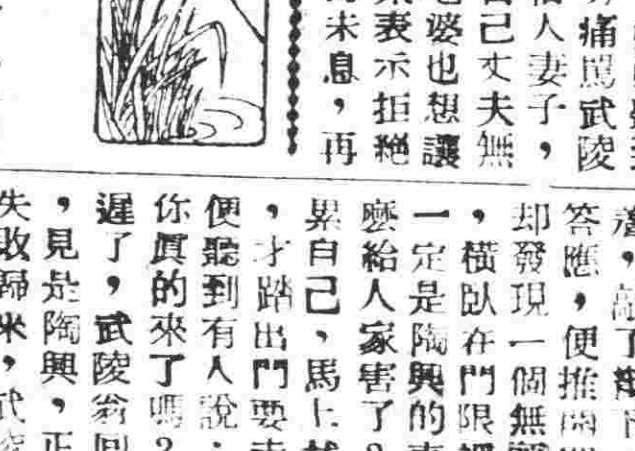 痛罵武陵
人妻子，
己丈夫無
婆也想讓
表示拒絕
未息，再
答應，便推開
却發現一個無
，橫臥在門限
一定是陶興的
麼給人家害了？
累自己，馬上
，才踏出門要
便聽到有人說：
你眞的來了嗎？
遲了，武陵翁回
，見是陶興，正
失敗歸來，武